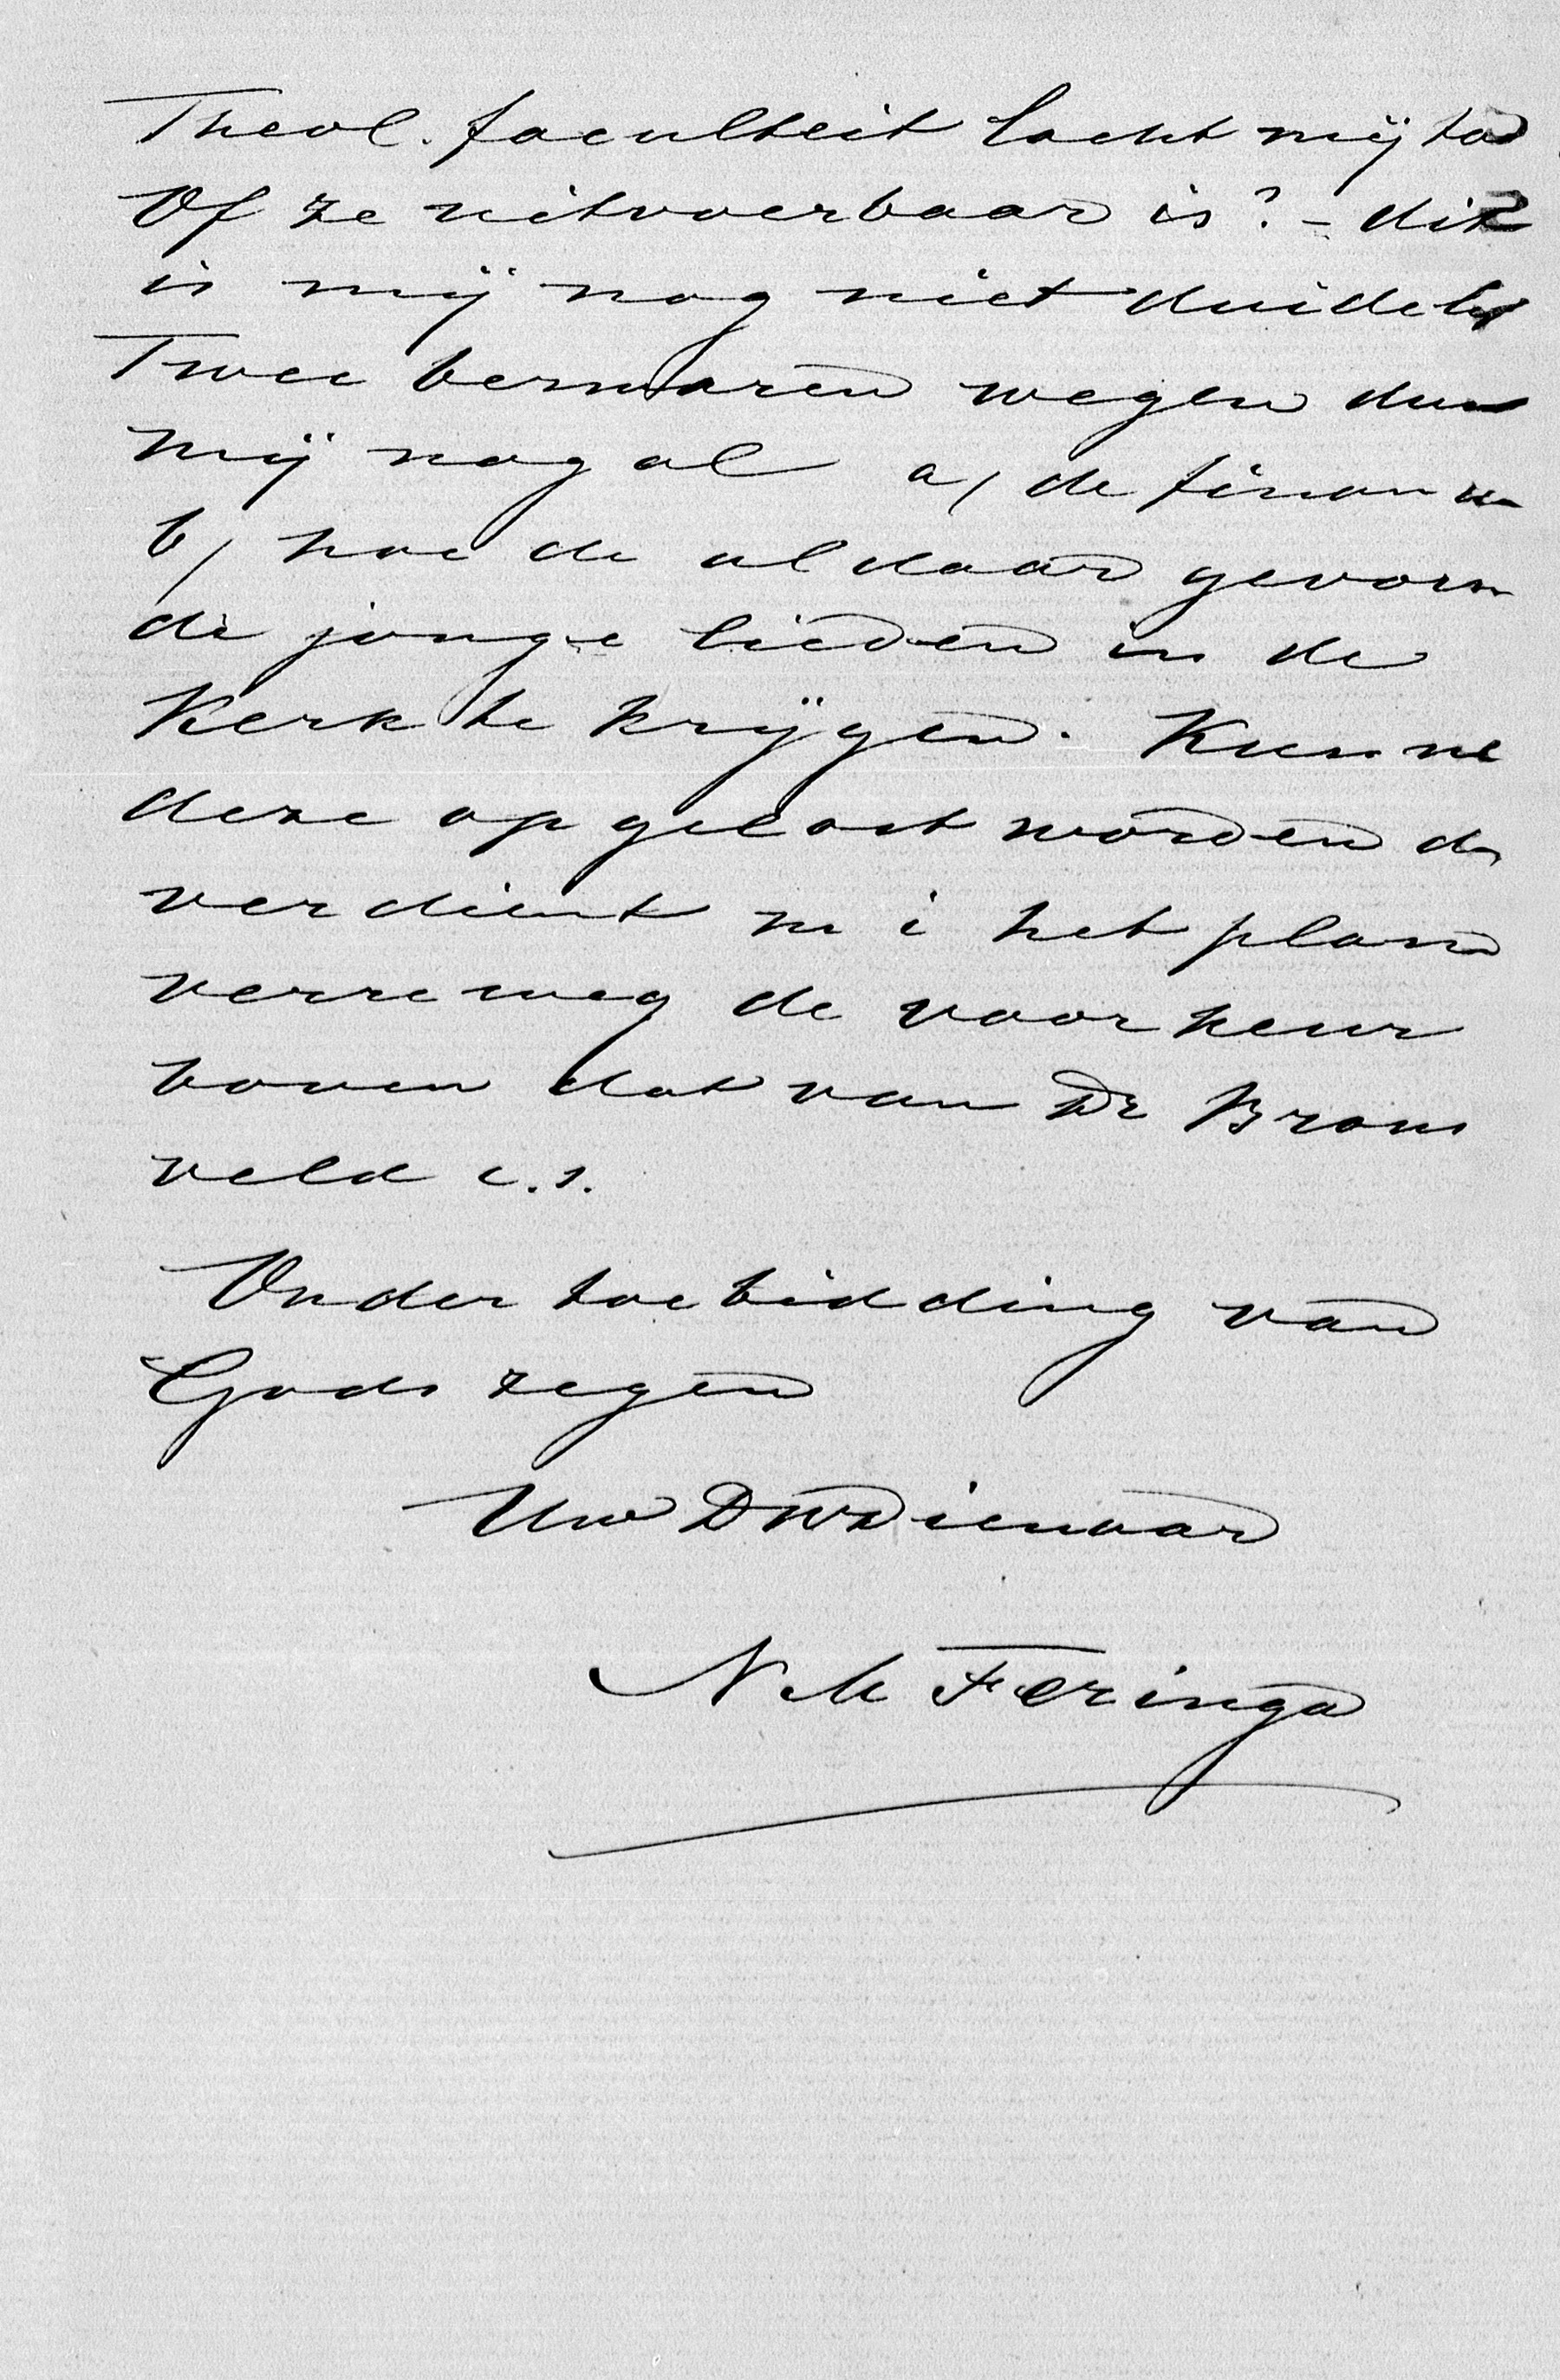 Theol. faculteit lacht mij toe
Of ze uitvoerbaar is? – dit
is mij nog niet duidelijk
Twee bezwaren wegen
mij nog al a/ de
b/ hoe de aldaar gevorm
de jonge lieden in de
Kerk te krijgen. Kunne
deze opgelost worden
verdient m i het plan
verreweg de voorkeur
boven dat van Dr Brons
veld c.s.
Onder toebidding van
Gods zegen
Uw DWDienaar
Feringa